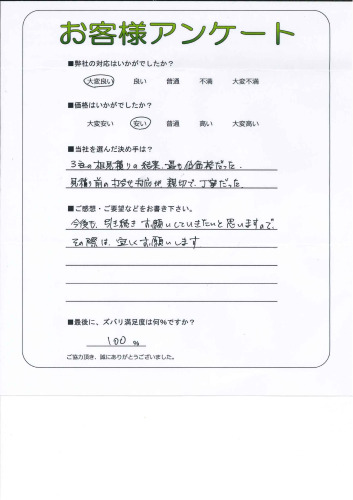 お客様アンケート
■弊社の対応はいかがでしたか?
大変良い 良い 普通 不満 大変不満
■価格はいかがでしたか?
大変安い 安い 普通 高い 大変高い
■当社を選んだ決め手は?
3社の相見積りの結果、最も低価格だった.
見積り前の打合せ対応が親切で、丁寧だった
■ご感想・ご要望などをお書き下さい。
今後も、引き続きお願いしていきたいと思いますので、
その際は、宜しくお願いします
■最後に、ズバリ満足度は何%ですか?
100 %
ご協力頂き、誠にありがとうございました。